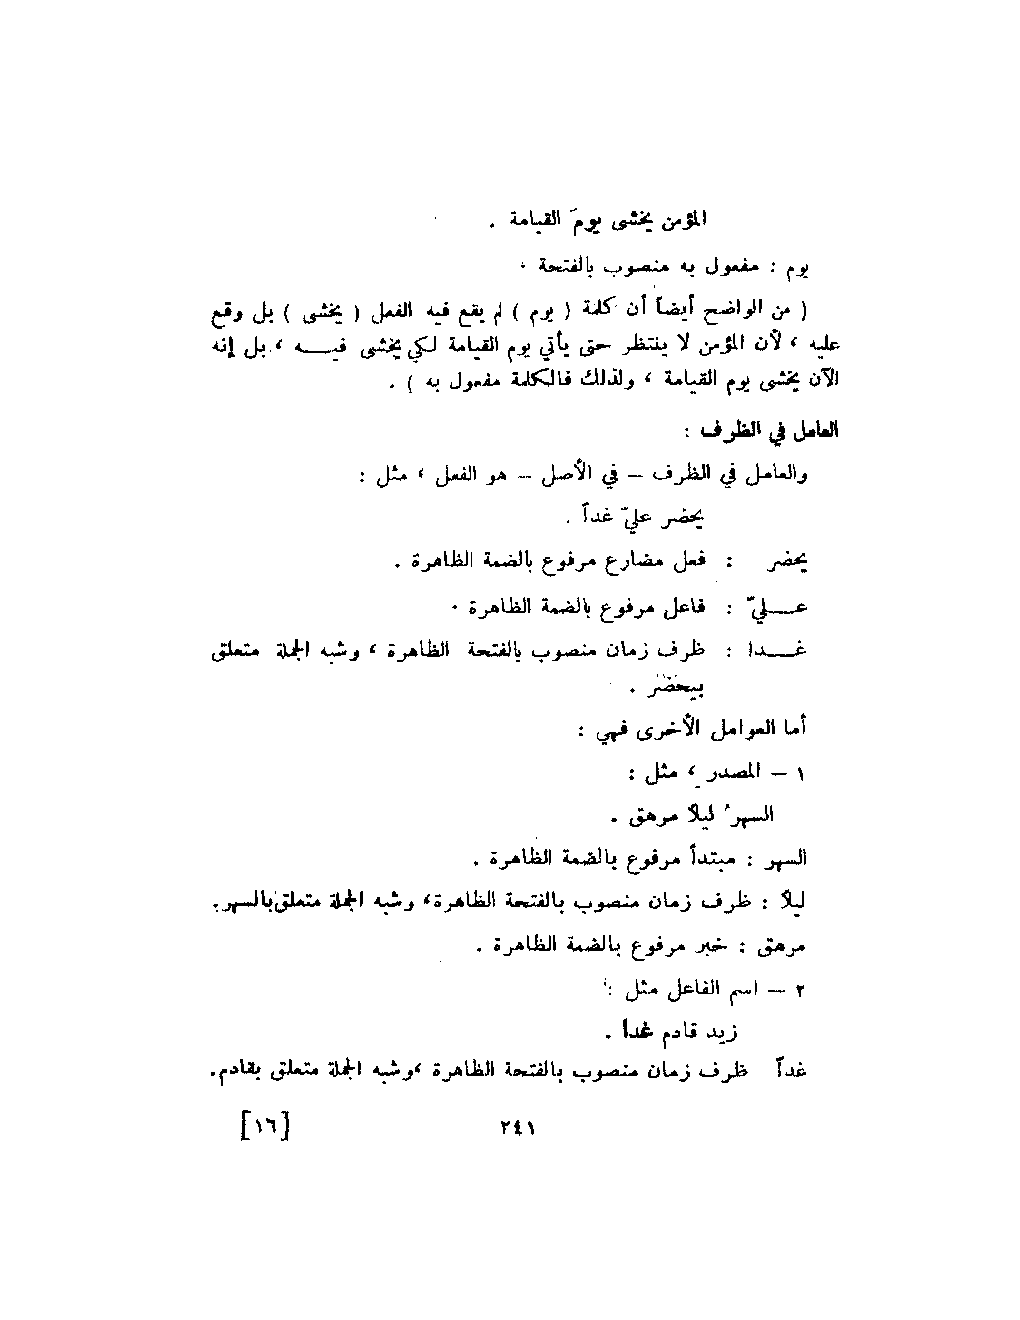 المؤمن يخشى يومَ القيامة .
يوم : مفعول به منصوب بالفتحة .
( من الواضح أيضاً أن كلمة ( يوم ) لم يقع فيه الفعل ( يخشى ) بل وقع
عليه ، لأن المؤمن لا ينتظر حتى يأتي يوم القيامة لكي يخشى فيـــه ، بل إنه
الآن يخشى يوم القيامة ، ولذلك فالكلمة مفعول به ) .
العامل في الظرف :
والعامل في الظرف – في الأصل – هو الفعل ، مثل :
يحضر عليّ غداً .
يحضر : فعل مضارع مرفوع بالضمة الظاهرة .
عـــليّ : فاعل مرفوع بالضمة الظاهرة .
غـــدا : ظرف زمان منصوب بالفتحة الظاهرة ، وشبه الجملة متعلق
بيحضر .
أما العوامل الأخرى فهي :
١ – المصدر ، مثل :
السهرُ ليلاً مرهق .
السهر : مبتدأ مرفوع بالضمة الظاهرة .
ليلاً : ظرف زمان منصوب بالفتحة الظاهرة، وشبه الجملة متعلق بالسهر.
مرهق : خبر مرفوع بالضمة الظاهرة .
٢ – اسم الفاعل مثل :
زيد قادم غداً .
غداً ظرف زمان منصوب بالفتحة الظاهرة ،وشبه الجملة متعلق بقادم.
٢٤١
[١٦]